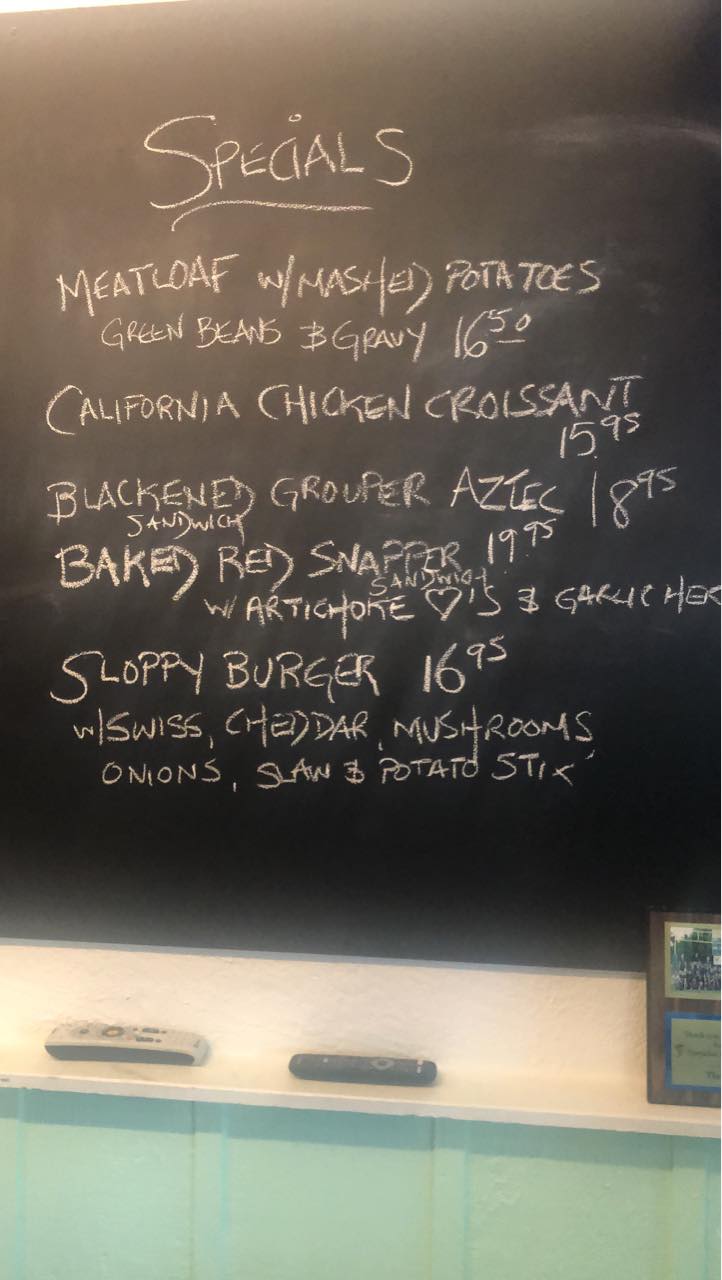 SPECIALS
MEATLOAF W/MASHED POTATOES
GREEN BEANS & GRAVY 16 50
CALIFORNIA CHICKEN CROISSANT
15.95
BLACKENED GROUPER AZTEC 18 95
SANDWICH
BAKED RED SNAPPER 19.95
SANDWICH
W/ ARTICHOKE ♡'S & GARLIC HER
SLOPPY BURGER 16 95
W/SWISS, CHEDDAR, MUSHROOMS
ONIONS, SLAW & POTATO STIX